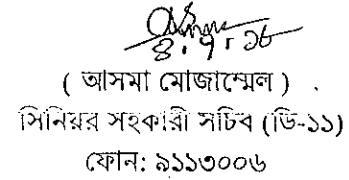 ৪.৭.১৬
( আসমা মোজাম্মেল )
সিনিয়র সহকারী সচিব (ডি-১১)
ফোন: ৯১১৩০০৬